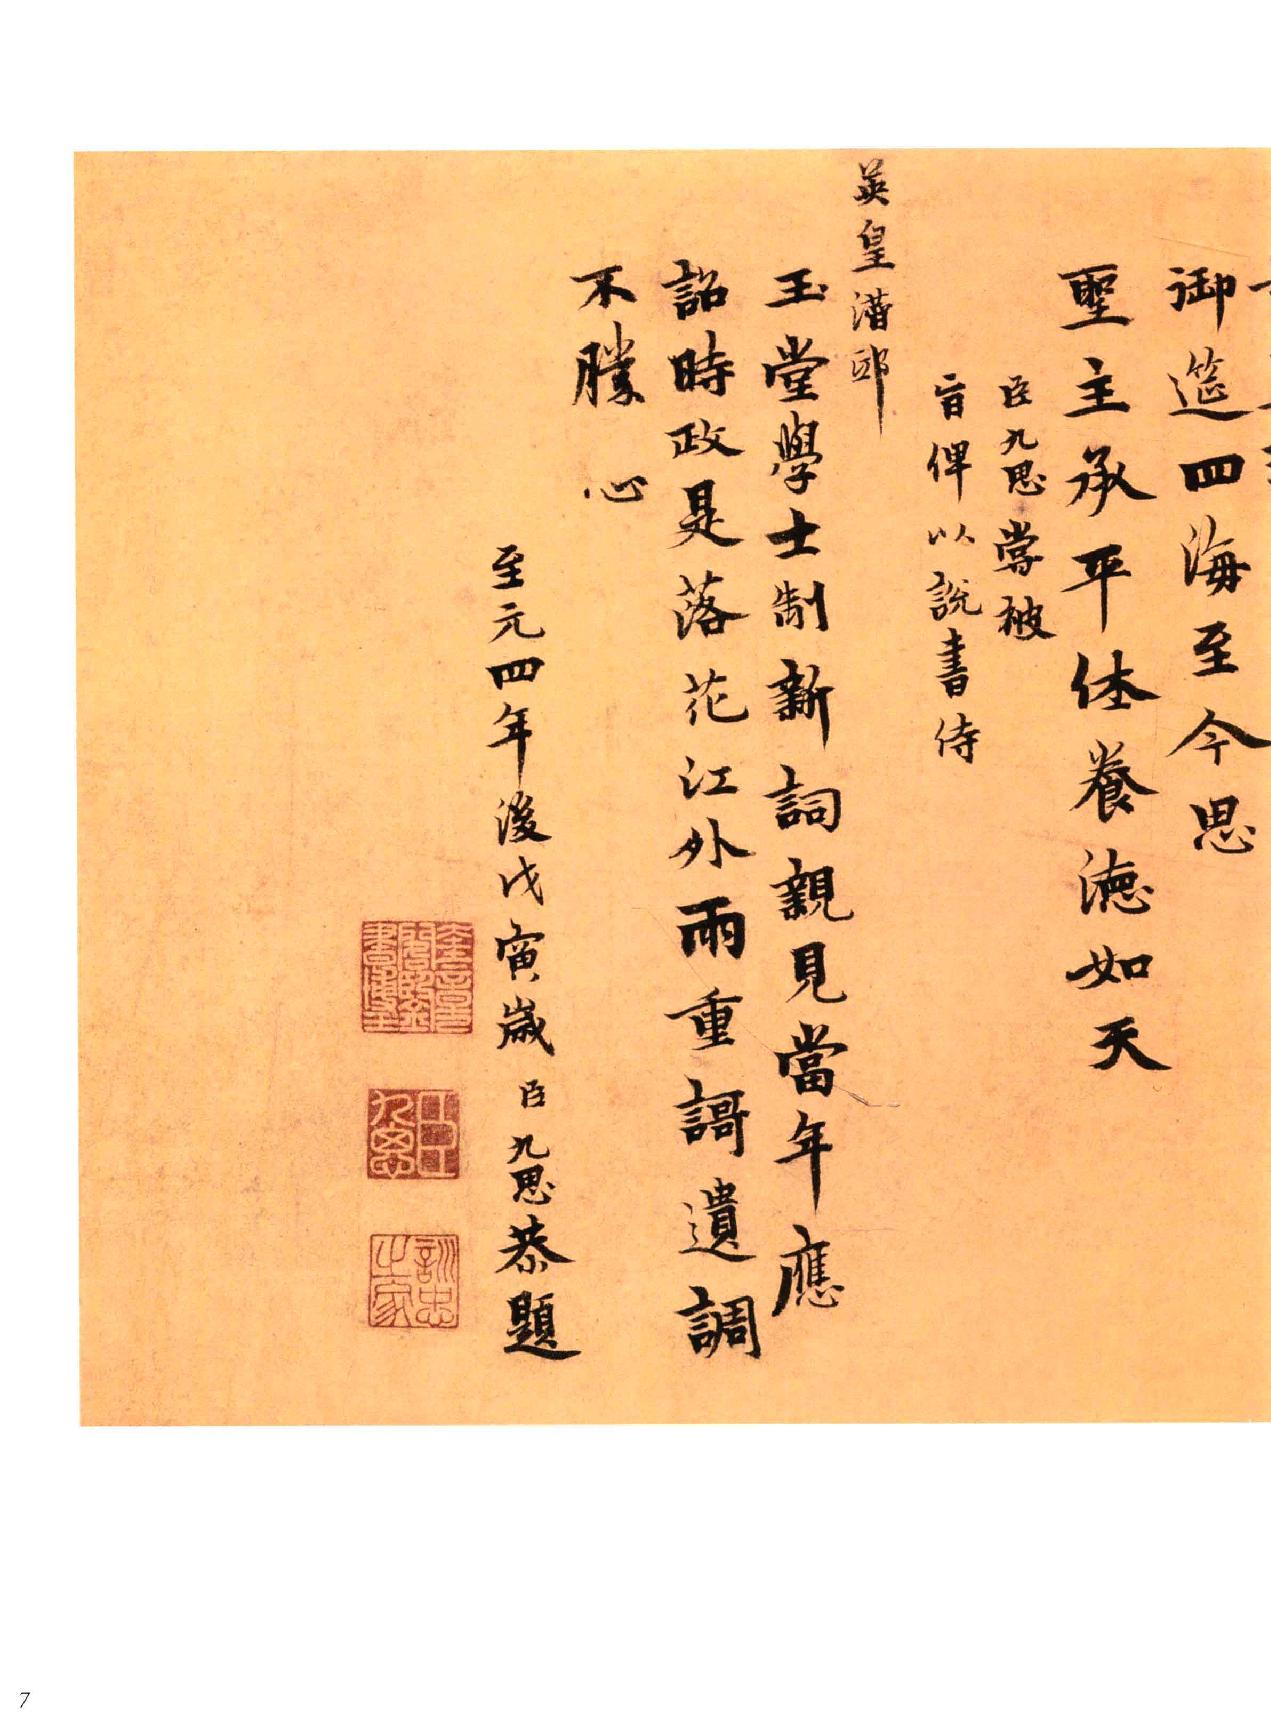 御筵四海至今思
聖主承平体養德如天
臣九思嘗被
旨俾以說書侍
英皇潛邸
玉堂學士制新詞親見當年應
詔時政是落花江外雨重謌遺調
不勝心
至元四年後戊寅歲臣九思恭題
奎章閣鑒書博士
臣九思
訓忠之家
7